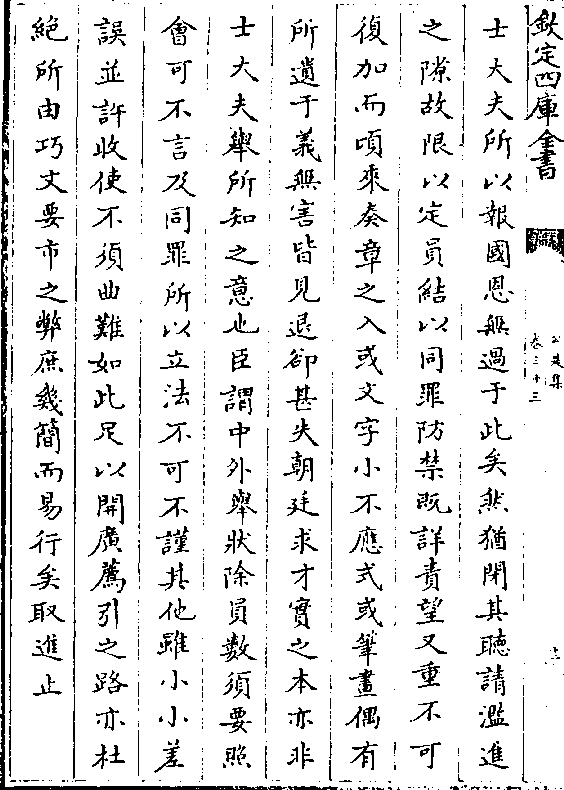 欽定四庫全書
公是集
卷三十三
士大夫所以報國恩無過于此矣然猶閉其聽請濫進
之隙故限以定員結以同罪防禁既詳責望又重不可
復加而頃來奏章之入或文字小不應式或筆畫偶有
所遺于義無害皆見退卻甚失朝廷求才實之本亦非
士大夫舉所知之意也臣謂中外舉狀除員數須要照
會可不言及同罪所以立法不可不謹其他雖小小差
誤並許收使不須曲難如此足以開廣薦引之路亦杜
絶所由巧文要市之弊庶幾簡而易行矣取進止